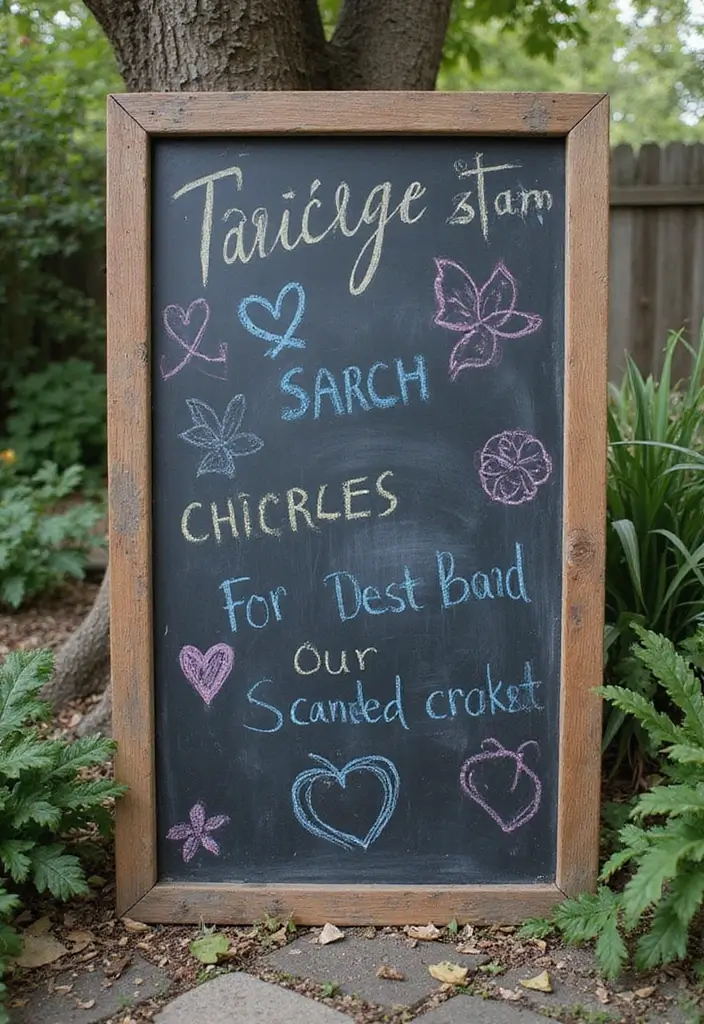 Taričlge stam
SARCH
CHICRLES
For Dest Band
our
Scanded croket